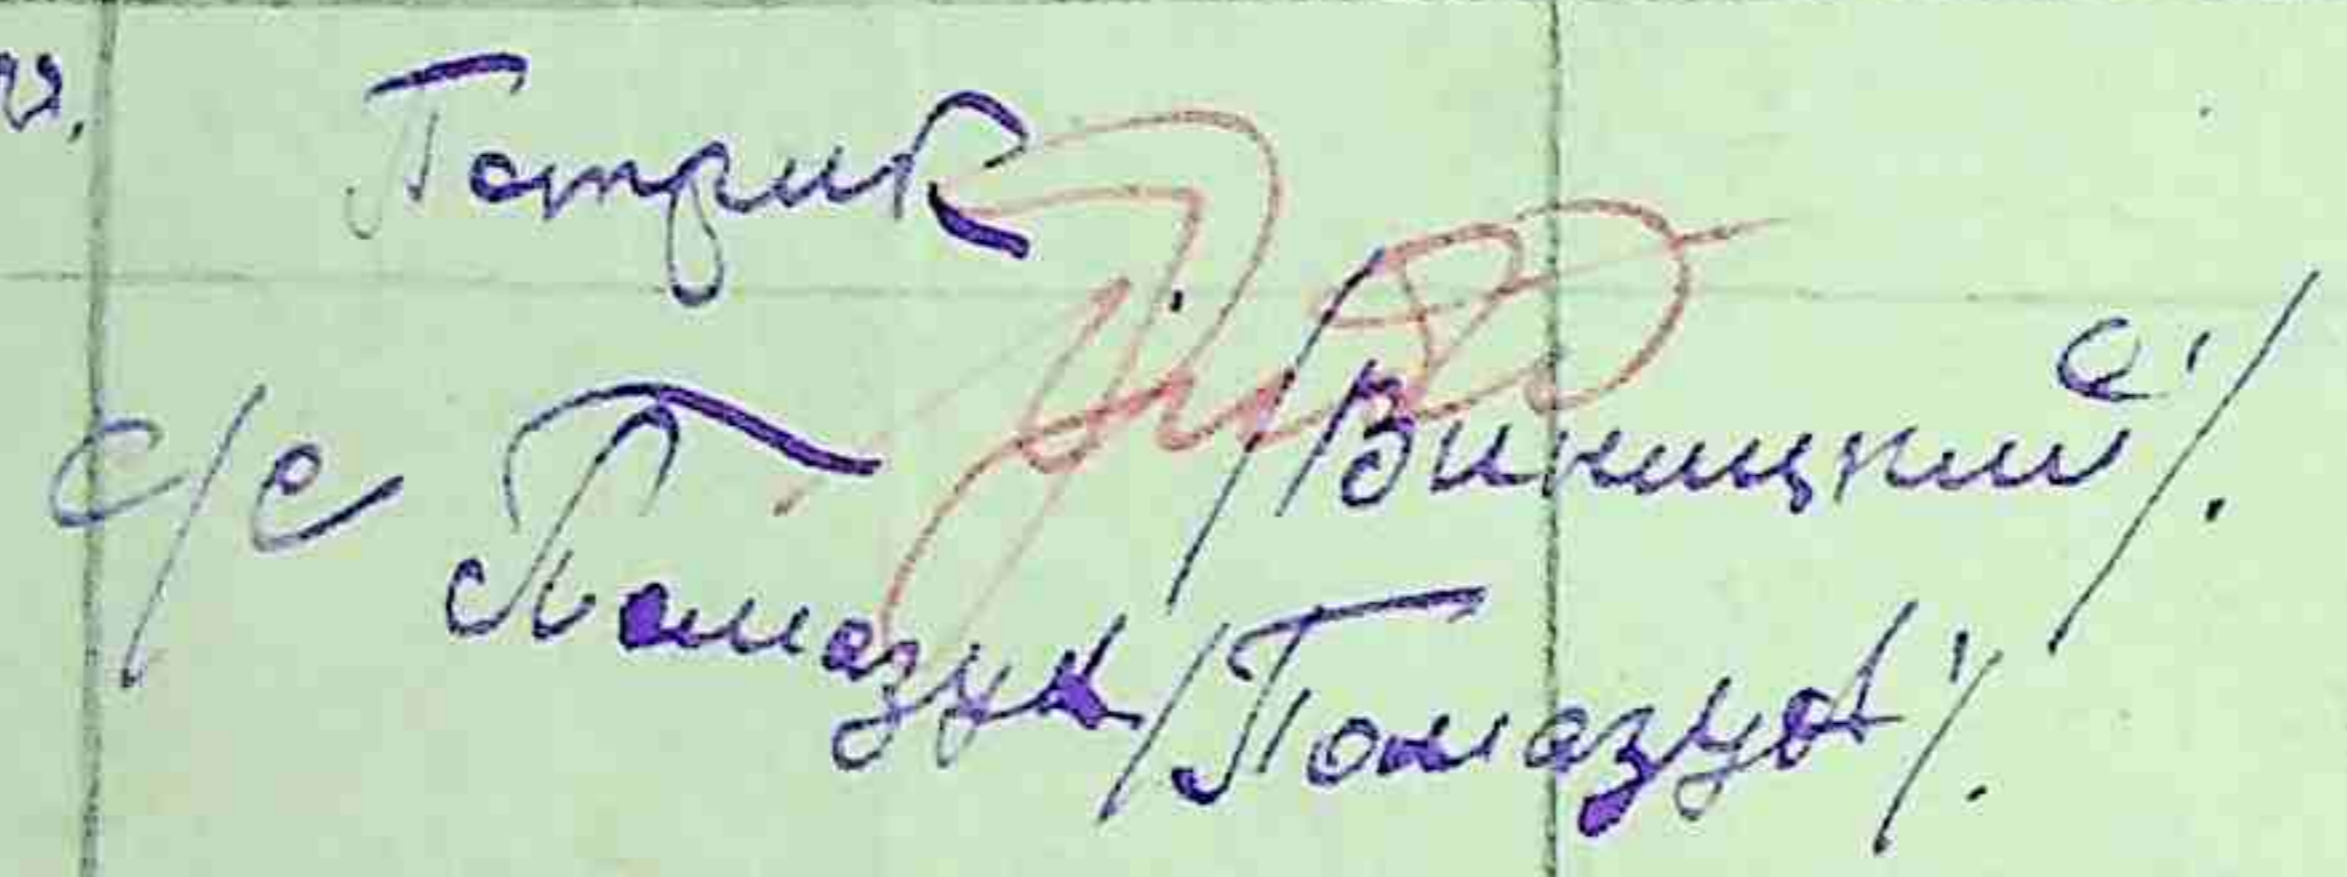 Патрик
с/с /Виницкий/.
Помазун /Помазун/.